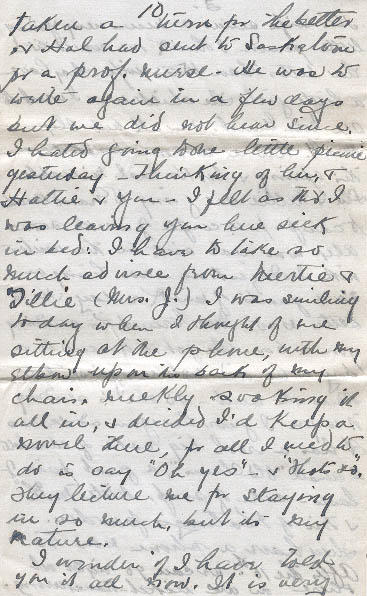 10
taken a turn for the better
& Hal had sent to Saskatoon
for a prof. nurse. He was to
write again in a few days
but we did not hear since.
I hated going to the little picnic
yesterday - thinking of her, &
Hattie & you - I felt as tho I
was leaving you here sick
in bed. I have to take so
much advice from Mertie &
Tillie (Mrs. J.) I was smiling
today when I thought of me
sitting at the phone, with my
elbow up on the back of my
chair, meekly soaking it
all in, & decided I'd keep a
novel there, for all I need to
do is say "Oh yes" - & "thats so".
They lecture me for staying
in so much, but its my
nature.
I wonder if I have told
you it all now. It is very